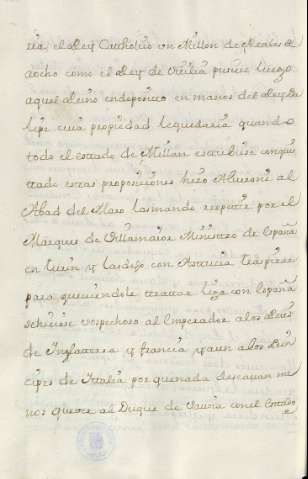 ria, el Rey Catholico un Millon de Reales de
aocho como el Rey de Sicilia pusiese luego
aquel Reino en deposito en manos del Rey Phe
lipe cuia propiedad le quedaria quando
todo el estado de Millan estubiese conquis
tado estas proposiciones hizo Alveroni al
Abad del Maro las mando repetir por el
Marques de Villamaior Ministro de España
en Turin y las dejo con Astucia
para, queriendole tratar liga con España
se hiciese sospechoso al Emperador a los Reies
de Inglaterra y francia y aun a los Prin
cipes de Ittalia por que nada deseavan me
nos que ver al Duque de Savoia con el Estado